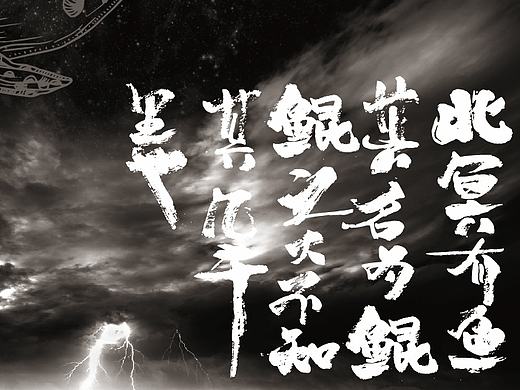 北冥有鱼
其名为鲲
鲲之大不知
其几千
里也